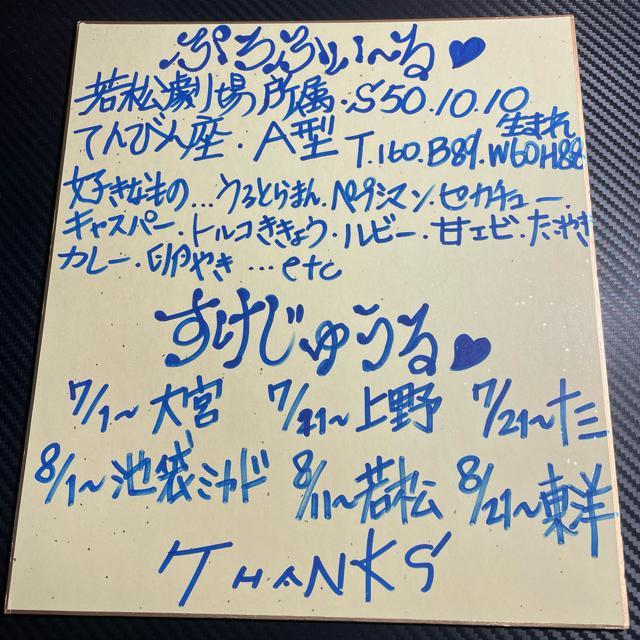 ぷろふぃ〜る♥
若松劇場所属・S50.10.10
生まれ
てんびん座・A型 T.160.B89.W60H88
好きなもの…うるとらまん・ペプシマン・セカチュー・
キャスパー・トルコききょう・ルビー・甘エビ・たまやき
カレー・卵やき…etc
すけじゅうる♥
7/1〜大宮 7/11〜上野 7/21〜十三
8/1〜池袋ミカド 8/11〜若松 8/21〜東洋
THANKS